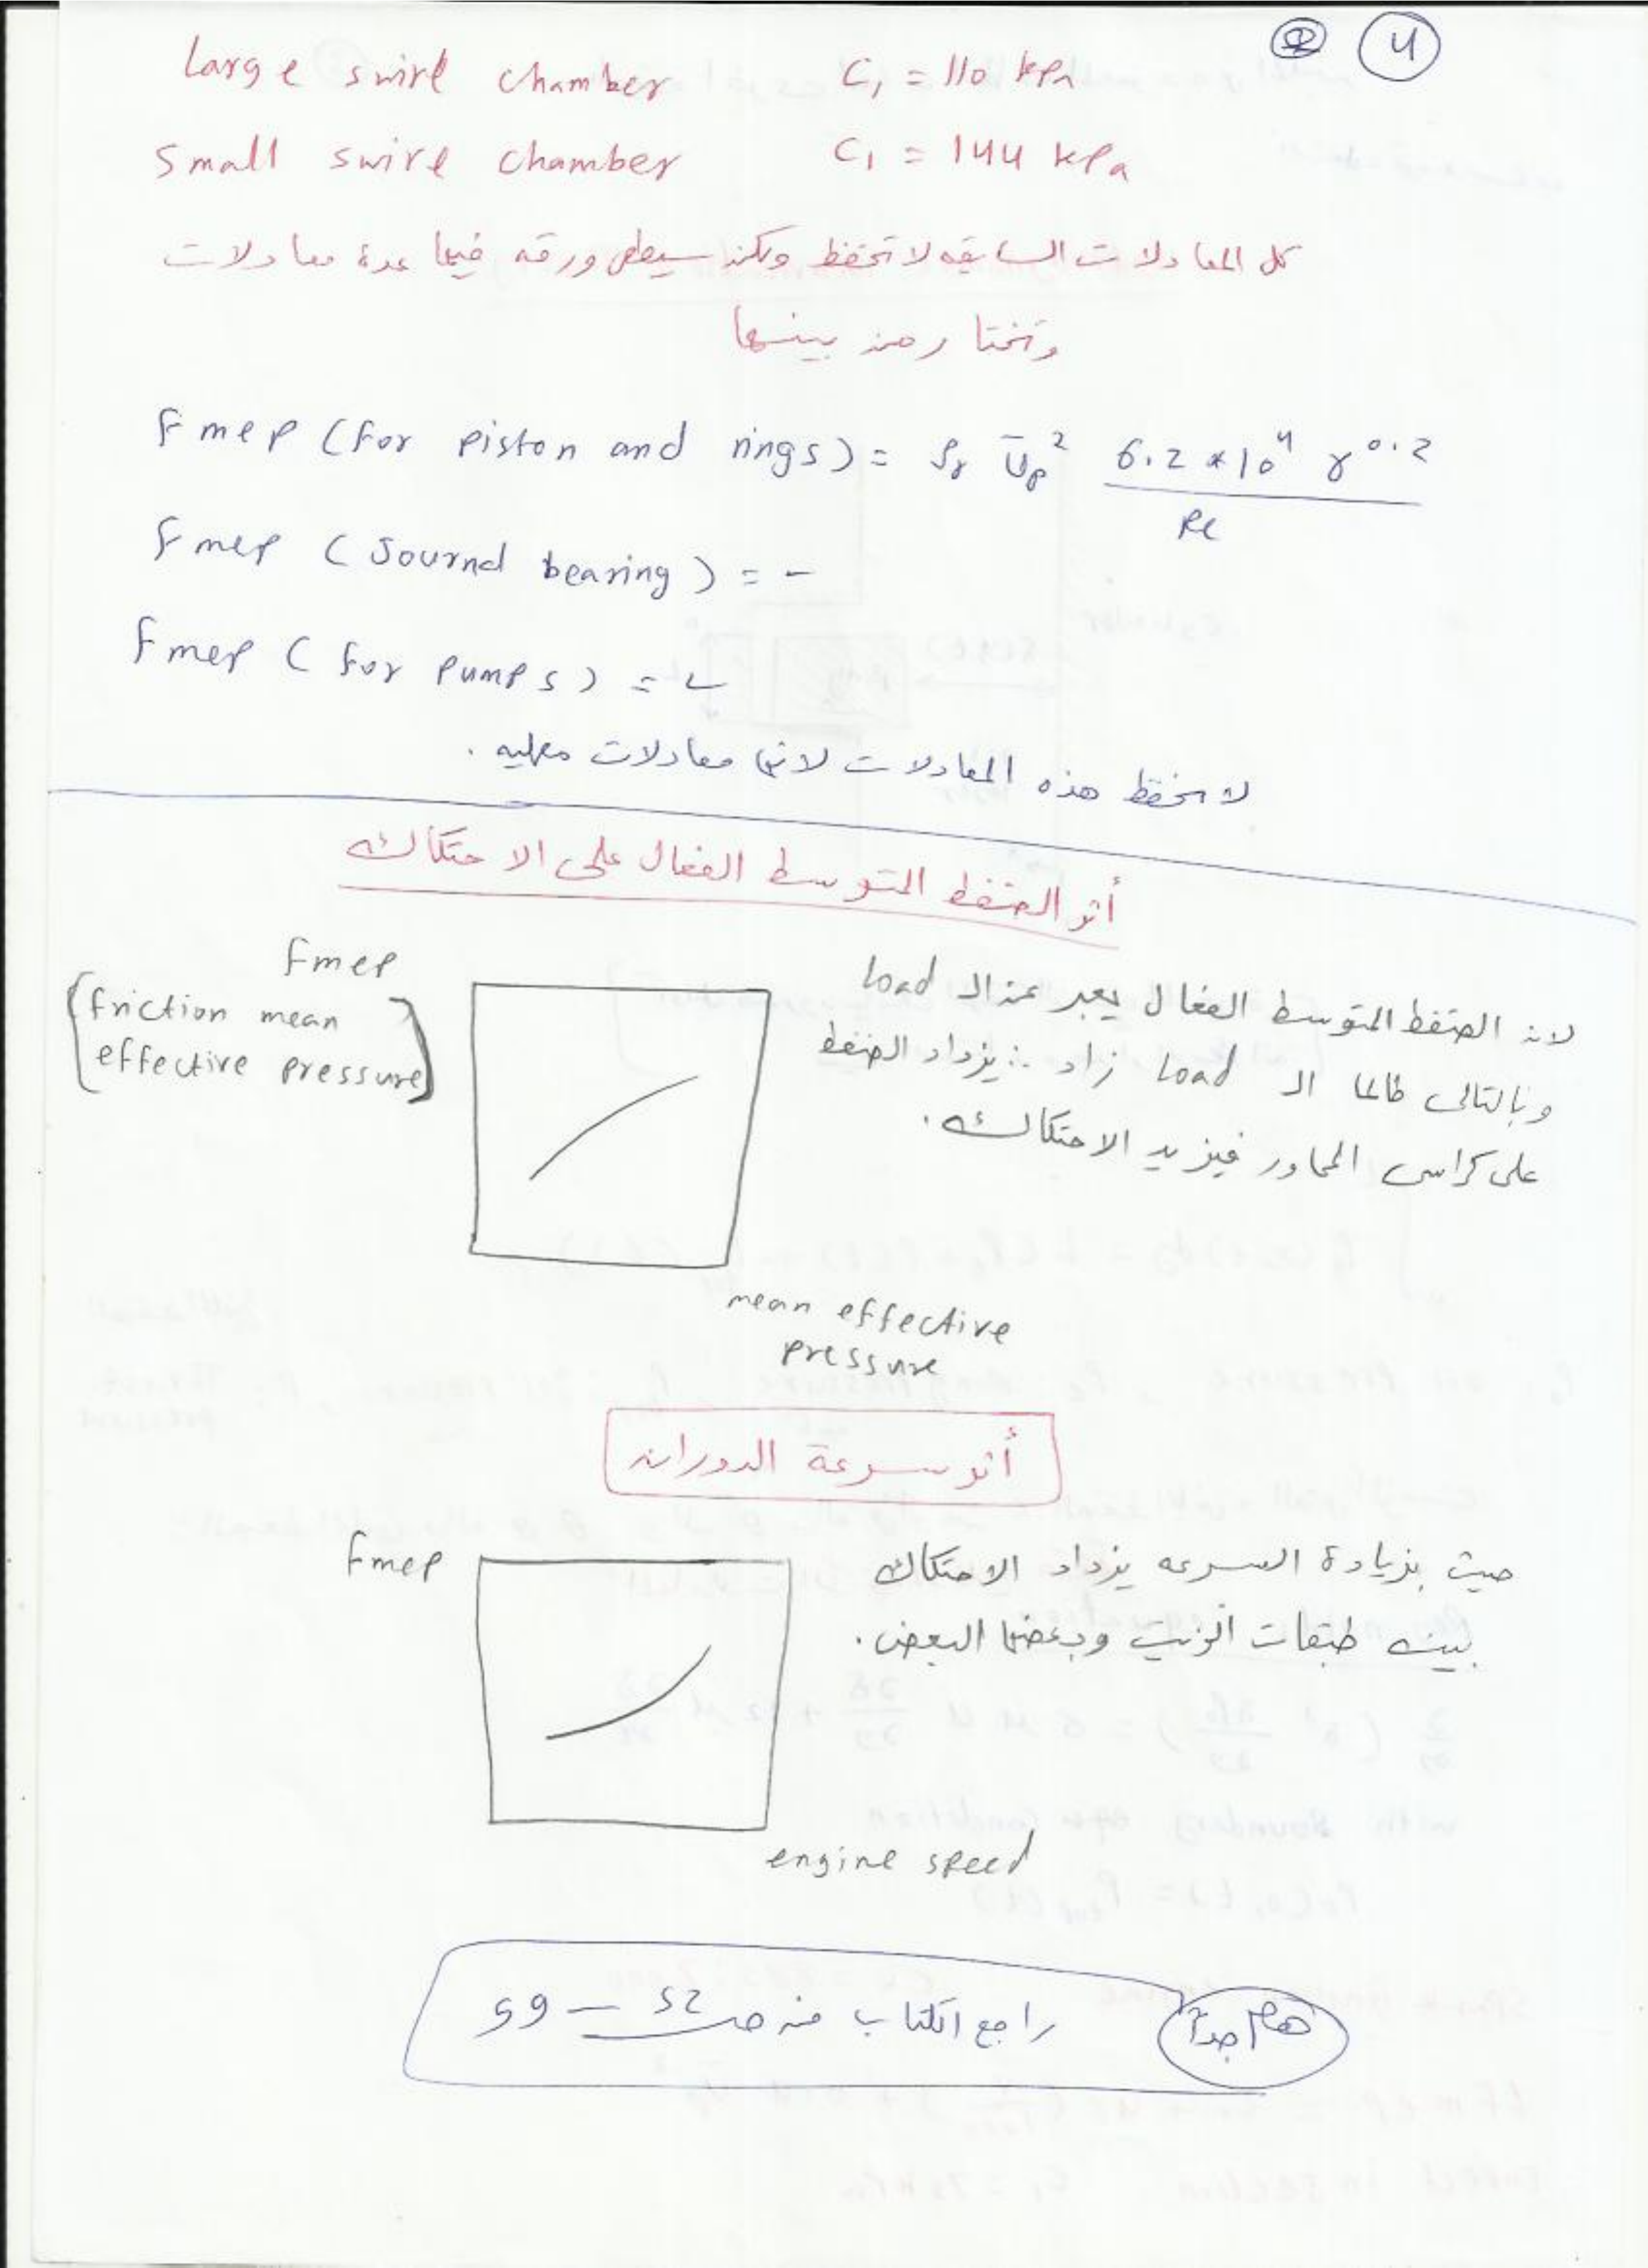 4
Large swirl chamber C1 = 110 kPa
Small swirl chamber C1 = 144 kPa
كل المعادلات السابقه لا تحفظ ولكن سيعطى ورقه فيها عدة معادلات
وتختار من بينها
Fmep (for piston and rings) = ρr Ūp² 6.2 * 10⁴ γ^0.2 / Re
Fmep (Journal bearing) = -
Fmep (for pumps) = -
لا تحفظ هذه المعادلات لانها معادلات معمليه .
أثر الضغط المتوسط الفعال على الاحتكاك
Fmep
(friction mean
effective pressure)
لان الضغط المتوسط الفعال يعبر عن الـ load
وبالتالى طالما الـ load زاد ∴ يزداد الضغط
على كراسى المحاور فيزيد الاحتكاك .
mean effective
pressure
أثر سرعة الدوران
Fmep
حيث بزيادة السرعه يزداد الاحتكاك
بين طبقات الزيت وبعضها البعض .
engine speed
هام جداً راجع الكتاب من صـ 52 – 59